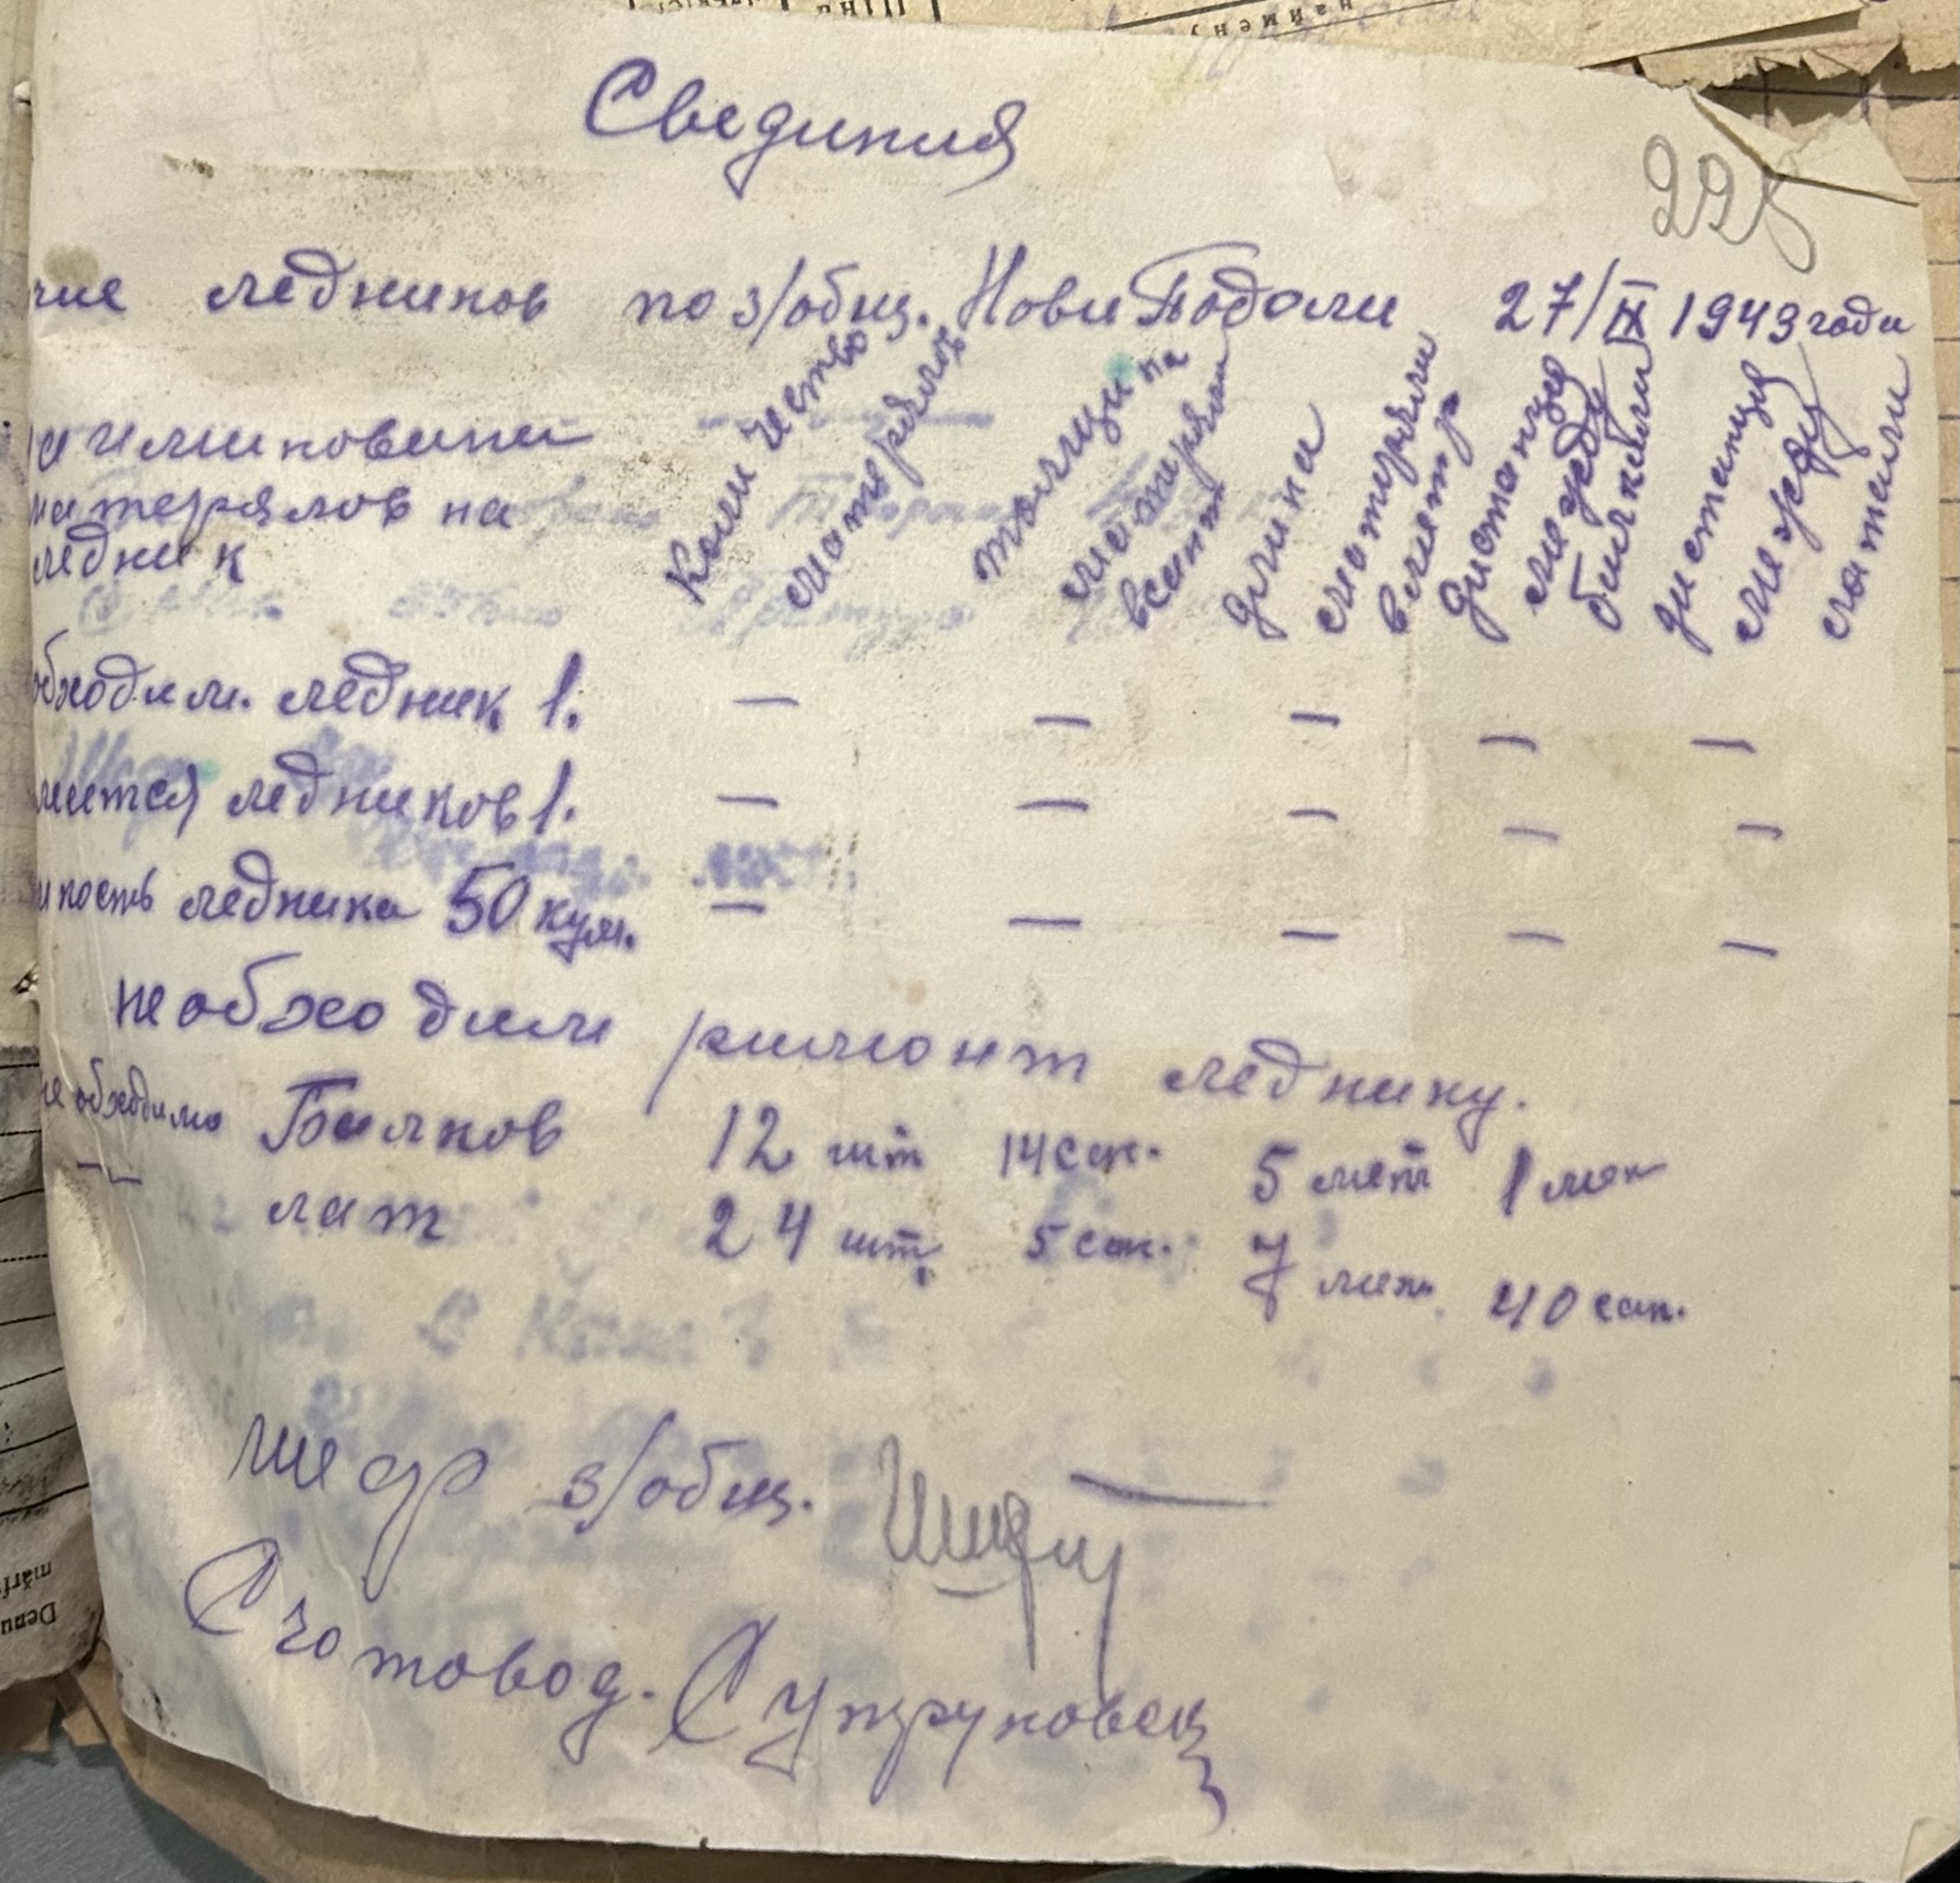 Свединия
228
ние ледников по з/общ. Нови Подоли 27/IX 1943 года
наимиповини
матерялов на
ледник
Количество
матерялов
толщина
матерялов
в сант
длина
матерялов
в метр
дистанця
между
билками
дистанця
между
латами
обходим. ледник 1. — — — — —
меется ледников 1. — — — — —
мность ледника 50 кум. — — — — —
необходим римонт леднику.
необходимо Билков 12 шт 14 сан. 5 мет 1 мет
—"— лат 24 шт. 5 сан. 7 мет. 40 сан.
шеф з/общ.
Счотовод. Супруновск